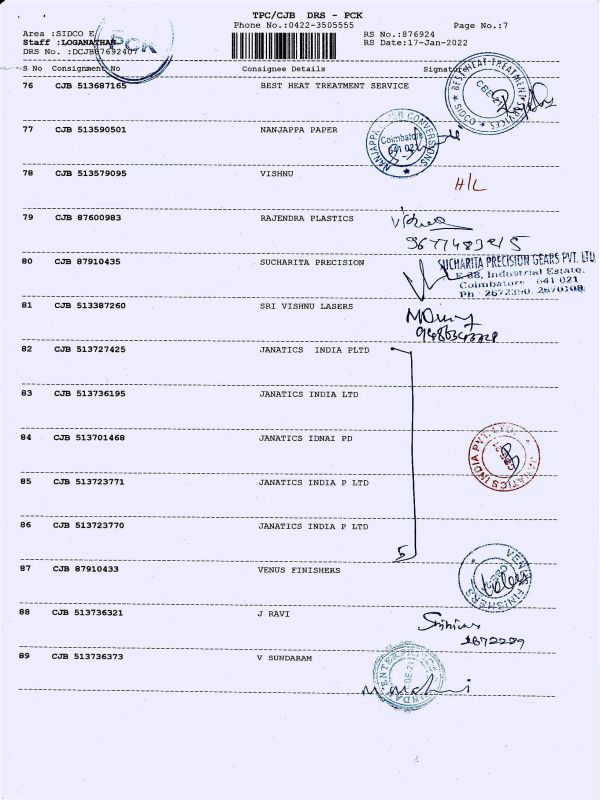 TPC/CJB DRS - PCK
Phone No.:0422-3505555 Page No.:7
Area :SIDCO E RS No.:876924
Staff :LOGANATHAN RS Date:17-Jan-2022
DRS No. :DCJB87692407
PCK
S No Consignment No Consignee Details Signature
76 CJB 513687165 BEST HEAT TREATMENT SERVICE
BEST HEAT-TREATMENT SERVICES SIDCO CBE-21
77 CJB 513590501 NANJAPPA PAPER
NANJAPPA PAPER CONVERSIONS Coimbatore 641 021
78 CJB 513579095 VISHNU
H/L
79 CJB 87600983 RAJENDRA PLASTICS
80 CJB 87910435 SUCHARITA PRECISION
SUCHARITA PRECISION GEARS PVT. LTD
E-88, Industrial Estate,
Coimbatore 641 021
Ph : 2672390, 2670108
81 CJB 513387260 SRI VISHNU LASERS
82 CJB 513727425 JANATICS INDIA PLTD
83 CJB 513736195 JANATICS INDIA LTD
84 CJB 513701468 JANATICS IDNAI PD
JANATICS INDIA PVT. LTD.
85 CJB 513723771 JANATICS INDIA P LTD
86 CJB 513723770 JANATICS INDIA P LTD
5
87 CJB 87910433 VENUS FINISHERS
VENUS FINISHERS
88 CJB 513736321 J RAVI
89 CJB 513736373 V SUNDARAM